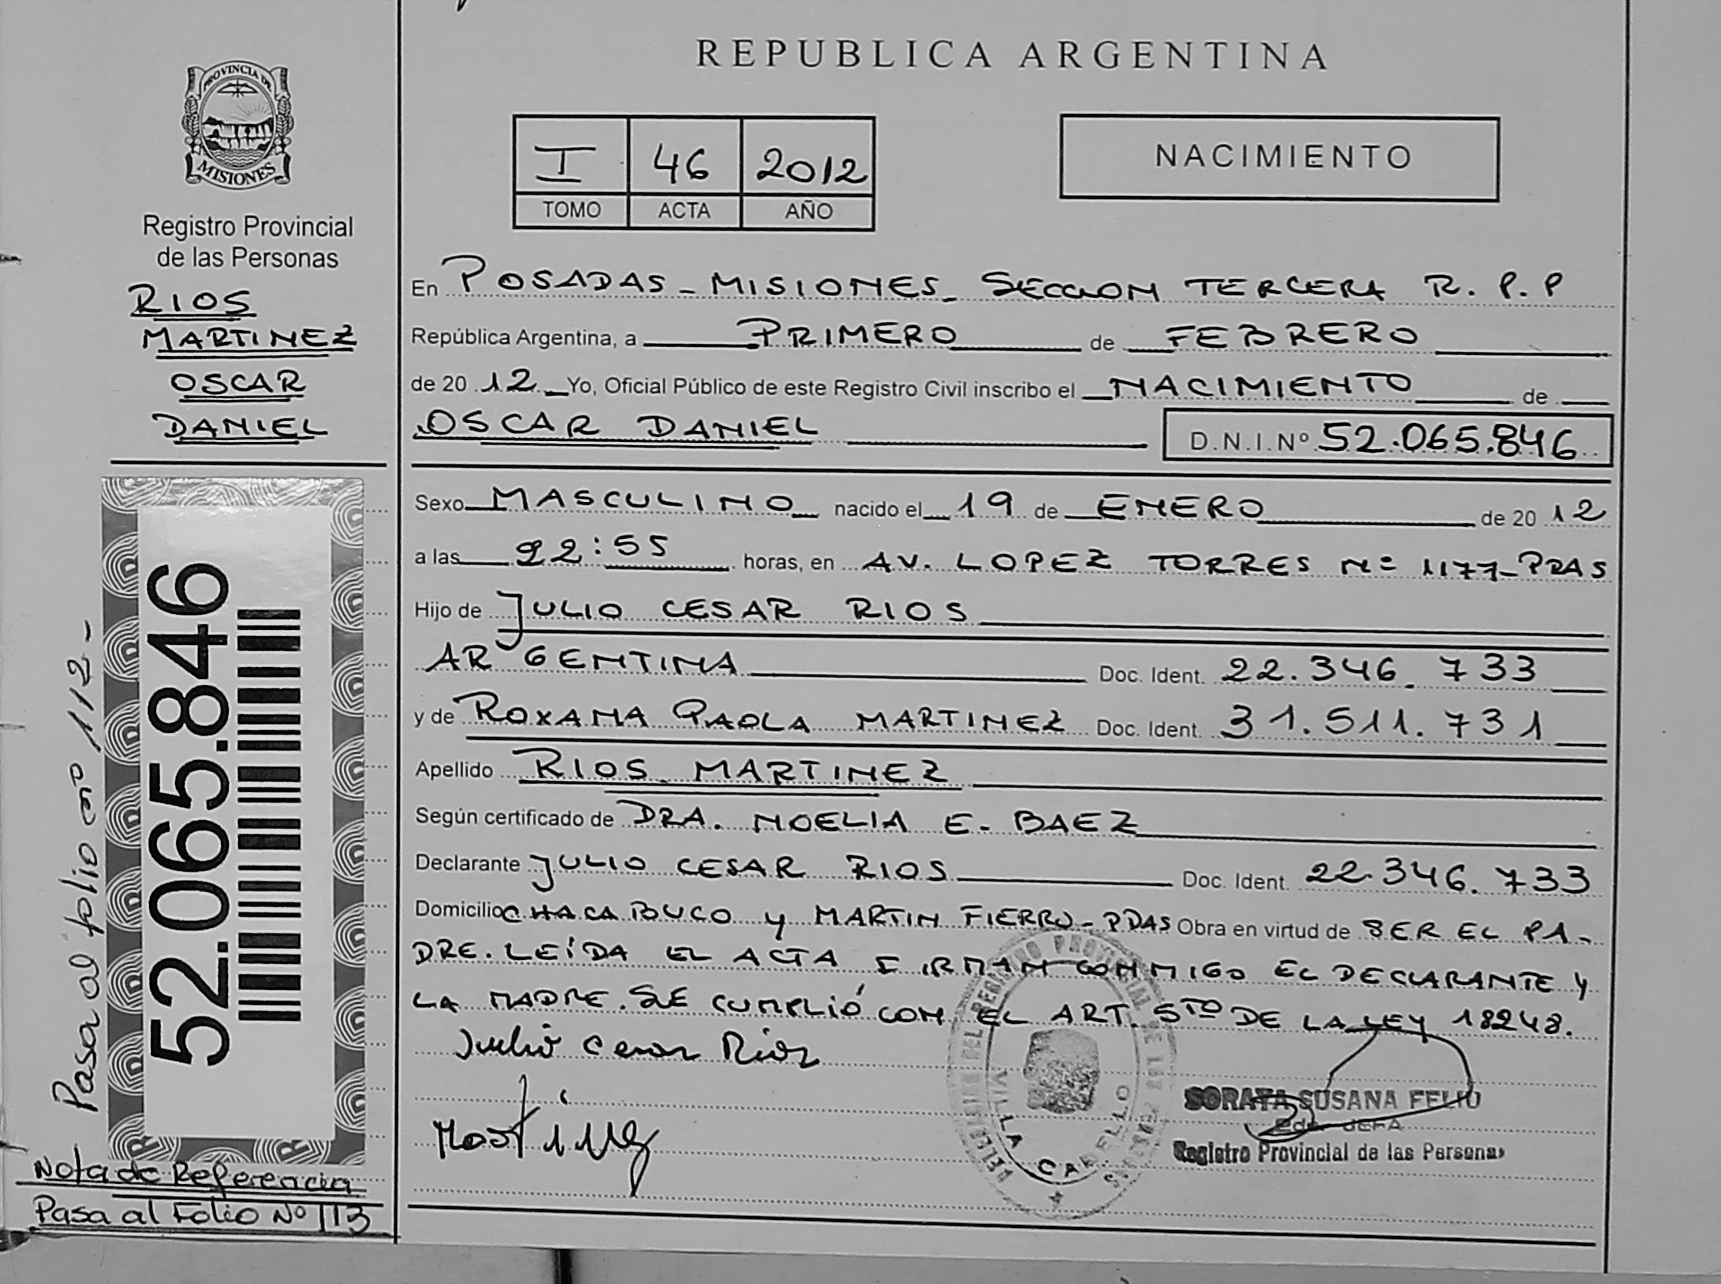 REPUBLICA ARGENTINA
PROVINCIA DE
MISIONES
Registro Provincial
de las Personas
RIOS
MARTINEZ
OSCAR
DANIEL
52.065.846
Pasa al folio nº 112-
Nota de Referencia
Pasa al Folio Nº 113
I 46 2012
TOMO ACTA AÑO
NACIMIENTO
En POSADAS - MISIONES - SECCION TERCERA R. P. P
República Argentina, a PRIMERO de FEBRERO
de 20 12 Yo, Oficial Público de este Registro Civil inscribo el NACIMIENTO de
OSCAR DANIEL D.N.I.Nº 52.065.846
Sexo MASCULINO nacido el 19 de ENERO de 20 12
a las 22:55 horas, en AV. LOPEZ TORRES Nº 1177-PDAS
Hijo de JULIO CESAR RIOS
ARGENTINA Doc. Ident. 22.346.733
y de ROXANA PAOLA MARTINEZ Doc. Ident. 31.511.731
Apellido RIOS MARTINEZ
Según certificado de DRA. NOELIA E. BAEZ
Declarante JULIO CESAR RIOS Doc. Ident. 22.346.733
Domicilio CHACABUCO y MARTIN FIERRO-PDAS Obra en virtud de SER EL PA-
DRE. LEÍDA EL ACTA FIRMAN CONMIGO EL DECLARANTE Y
LA MADRE. SE CUMPLIÓ CON EL ART. 5TO DE LA LEY 18248.
Julio Cesar Rios
Martinez
DELEGACION DEL REGISTRO PROVINCIAL DE LAS PERSONAS
VILLA CABELLO
SORAYA SUSANA FELIU
JEFA
Registro Provincial de las Personas